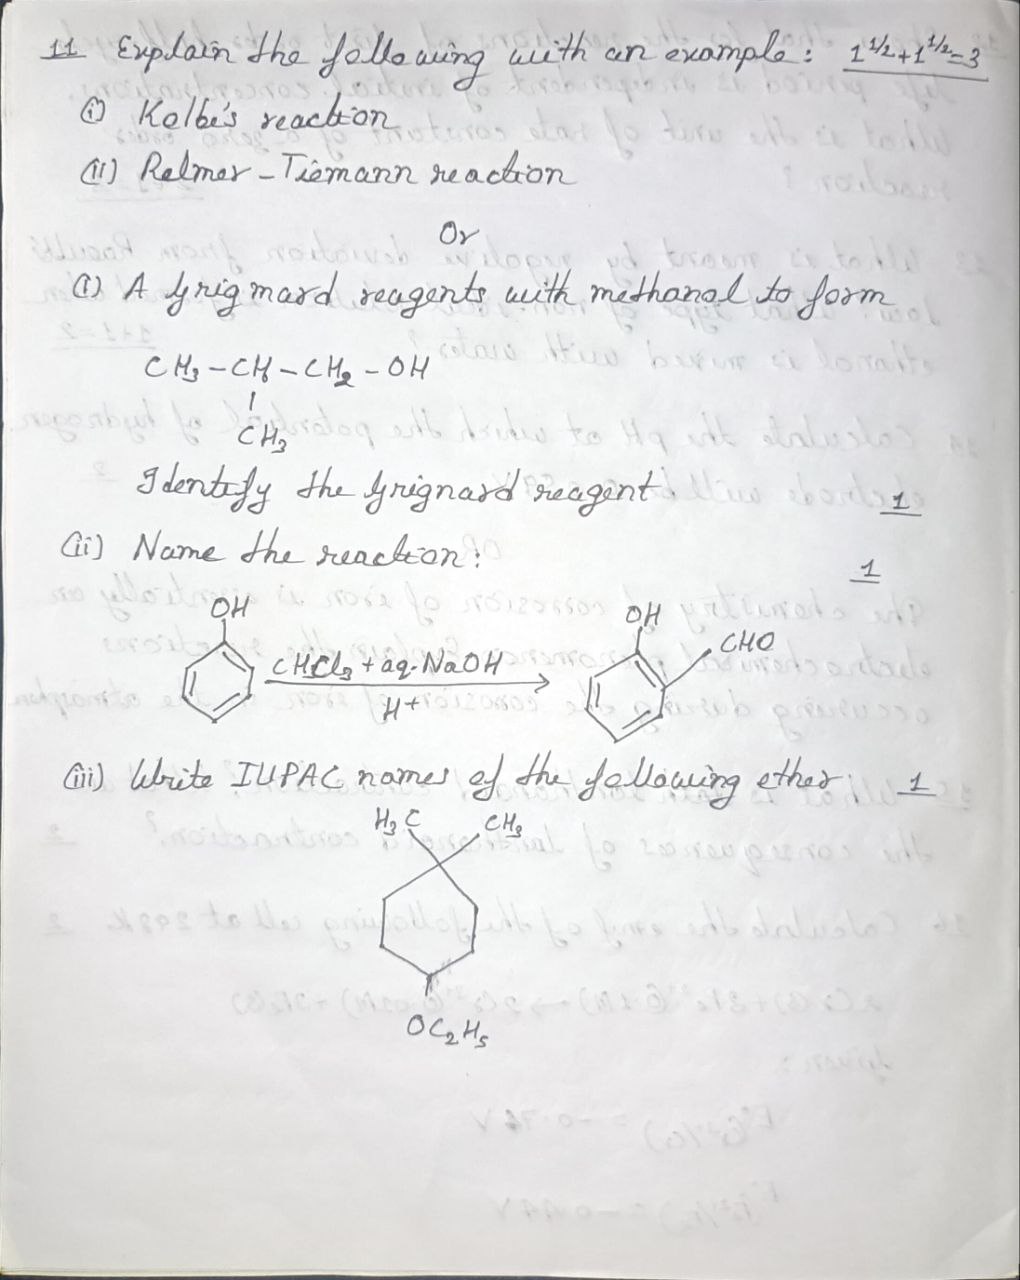 11 Explain the following with an example: 1 1/2 + 1 1/2 = 3
(i) Kolbe's reaction
(ii) Reimer - Tiemann reaction
Or
(i) A Grignard reagents with methanal to form
CH3 - CH - CH2 - OH
CH3
Identify the Grignard reagent 1
(ii) Name the reaction: 1
OH OH
CHO
CHCl3 + aq. NaOH
H+
(iii) Write IUPAC names of the following ether: 1
H3C CH3
OC2H5